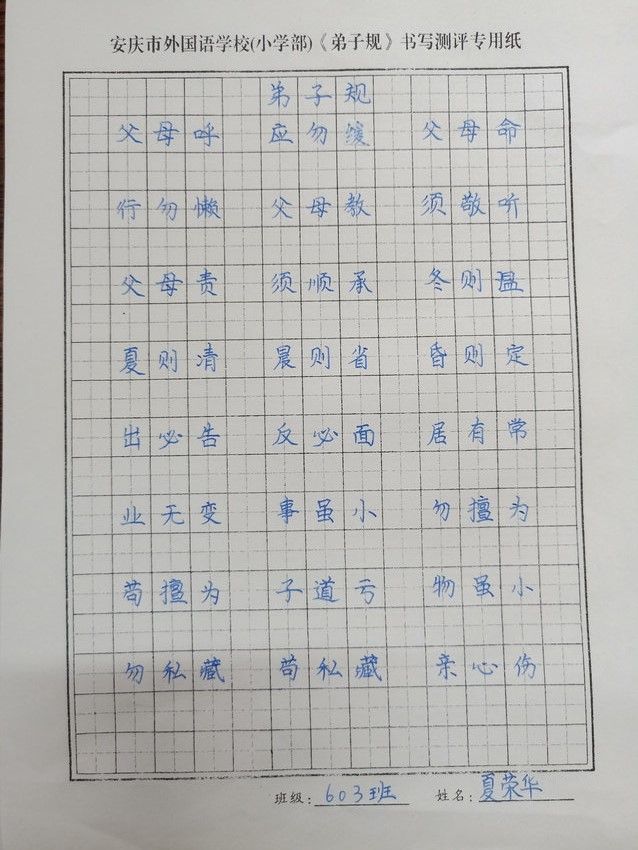 安庆市外国语学校(小学部)《弟子规》书写测评专用纸
弟子规
父母呼 应勿缓 父母命
行勿懒 父母教 须敬听
父母责 须顺承 冬则温
夏则凊 晨则省 昏则定
出必告 反必面 居有常
业无变 事虽小 勿擅为
苟擅为 子道亏 物虽小
勿私藏 苟私藏 亲心伤
班级: 603班 姓名: 夏荣华